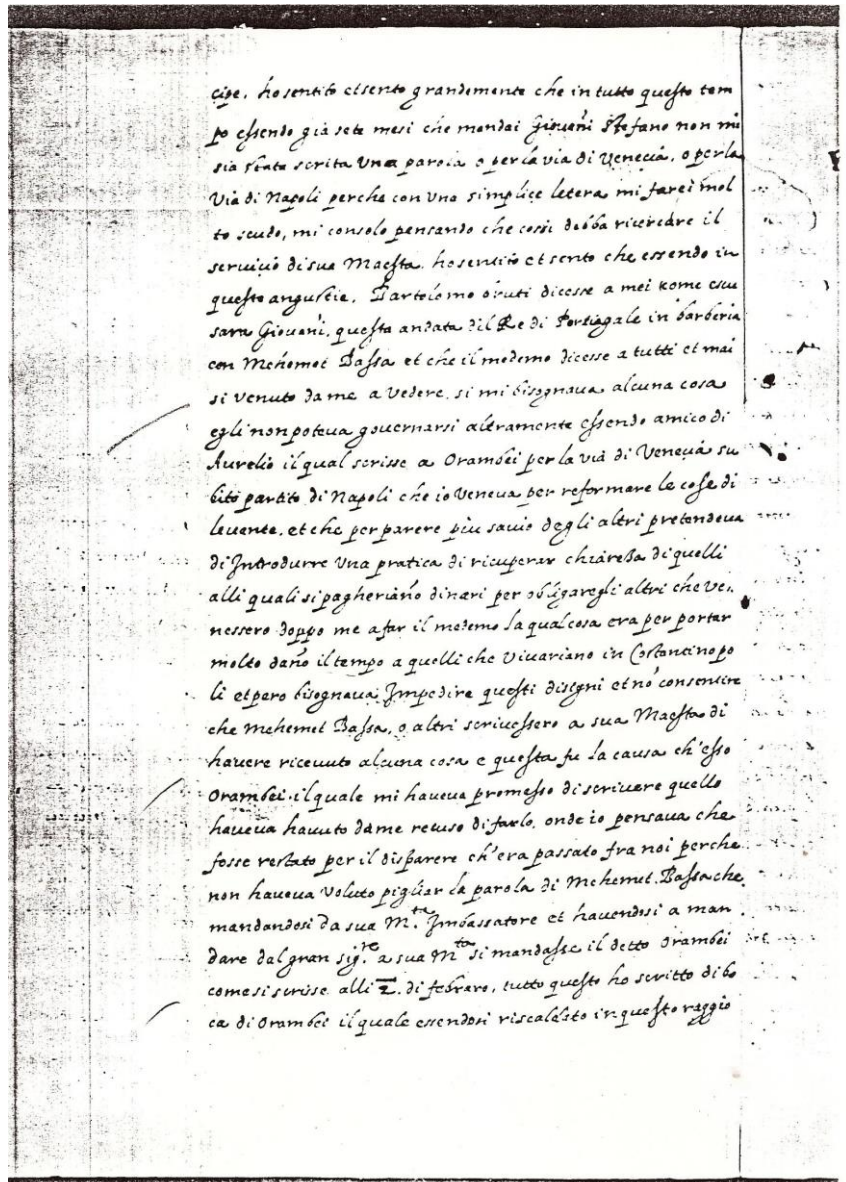 cipe. ho sentito et sento grandemente che in tutto questo tem
po essendo già sete mesi che mandai Giovañi Stefano non mi
sia stata scrita una parola o per la via di Venecia, o per la
via di Napoli perche con una simplice letera mi farei mol
to scudo, mi consolo pensando che cossi debba ricercare il
servicio di sua Maesta. ho sentito et sento che essendo in
queste angustie. Bartolomo bruti dicesse a mei nome
sara Giovañi, questa andata dil Re di Portugale in barberia
con Mehemet Bassa et che il medemo dicesse a tutti et mai
si venuto da me a vedere si mi bisognava alcuna cosa
egli non poteva governarsi altramente essendo amico di
Aurelio il qual scrisse a Orambei per la via di Venecia su
bito partito di Napoli che io veneva per reformare le cose di
levante, et che per parere più savio degli altri pretendeva
di Introdurre una pratica di ricuperar chiareza di quelli
alli quali si pagheriano dinari per obligare gli altri che ve
nessero doppo me a far il medemo la qual cosa era per portar
molto dañ il tempo a quelli che vivariano in Costantinopo
li et pero bisognava Impedire questi disegni et nõ consentire
che Mehemet Bassa, o altri scrivessero a sua Maesta di
havere ricevuto alcuna cosa e questa fu la causa ch'esso
Orambei il quale mi haveva promesso di scrivere quello
haveva havuto da me recuso di farlo. onde io pensava che
fosse restato per il disparere ch'era passato fra noi perche
non haveva voluto pigliar la parola di Mehemet Bassa che
mandandosi da sua M.ta Imbassatore et havendosi a man
dare dal gran sig.re a sua M.ta si mandasse il detto Orambei
come si scrisse alli 2. di febraro, tutto questo ho scritto di bo
ca di Orambei il quale essendosi riscaldato in questo raggio